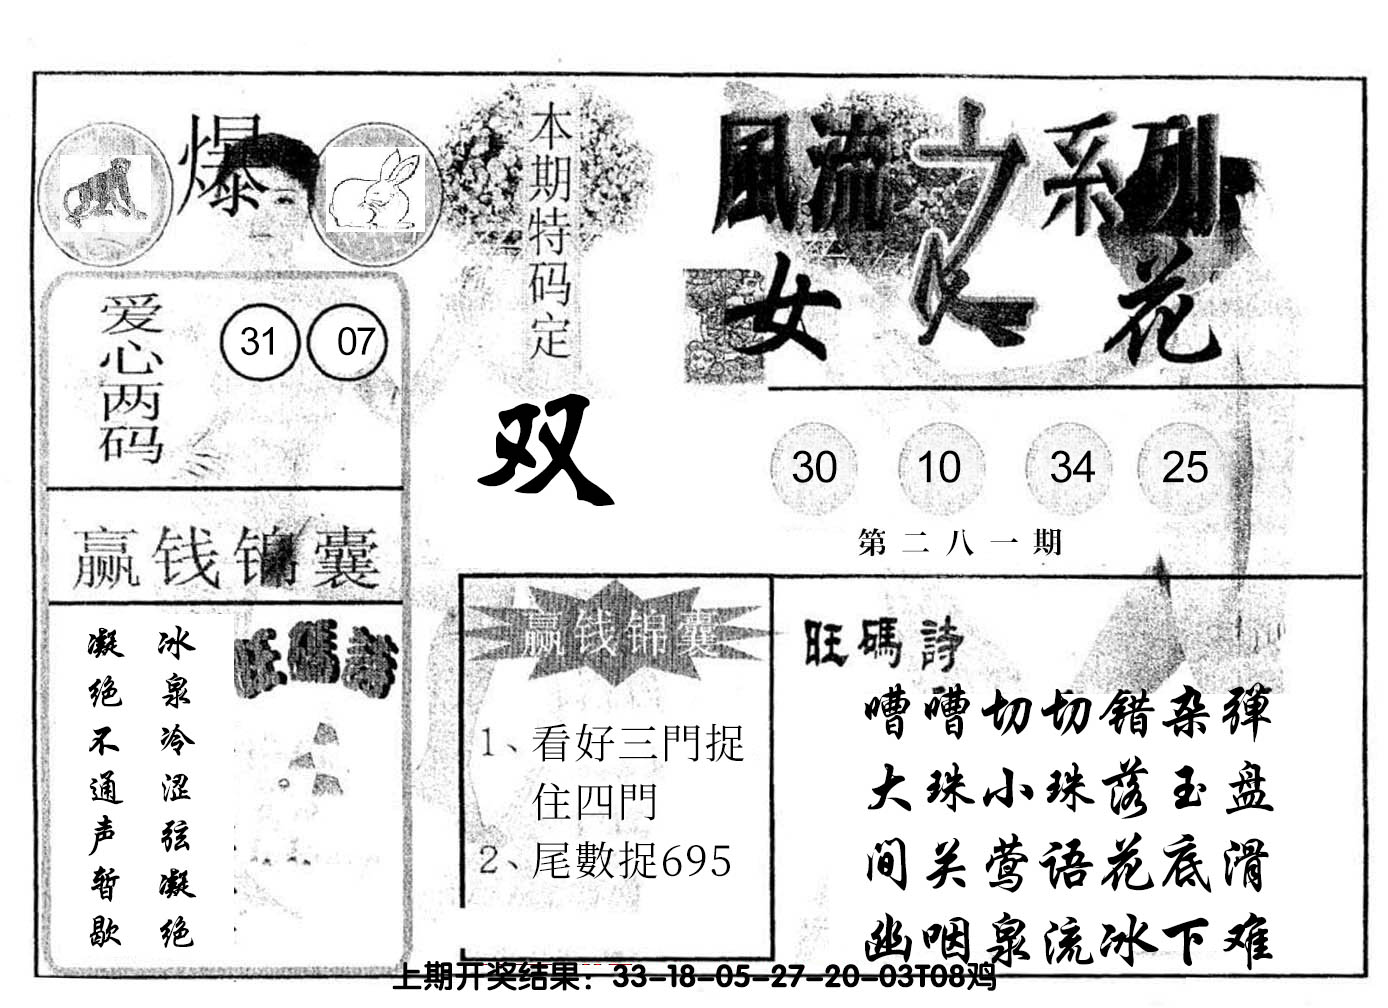 爆
本期特码定
双
風流之系列
女人花
爱心两码
31 07
30 10 34 25
第二八一期
赢钱锦囊
旺碼詩
冰泉冷涩弦凝绝
凝绝不通声暂歇
赢钱锦囊
1、看好三門捉
住四門
2、尾數捉695
旺碼詩
嘈嘈切切错杂弹
大珠小珠落玉盘
间关莺语花底滑
幽咽泉流冰下难
上期开奖结果：33-18-05-27-20-03T08鸡